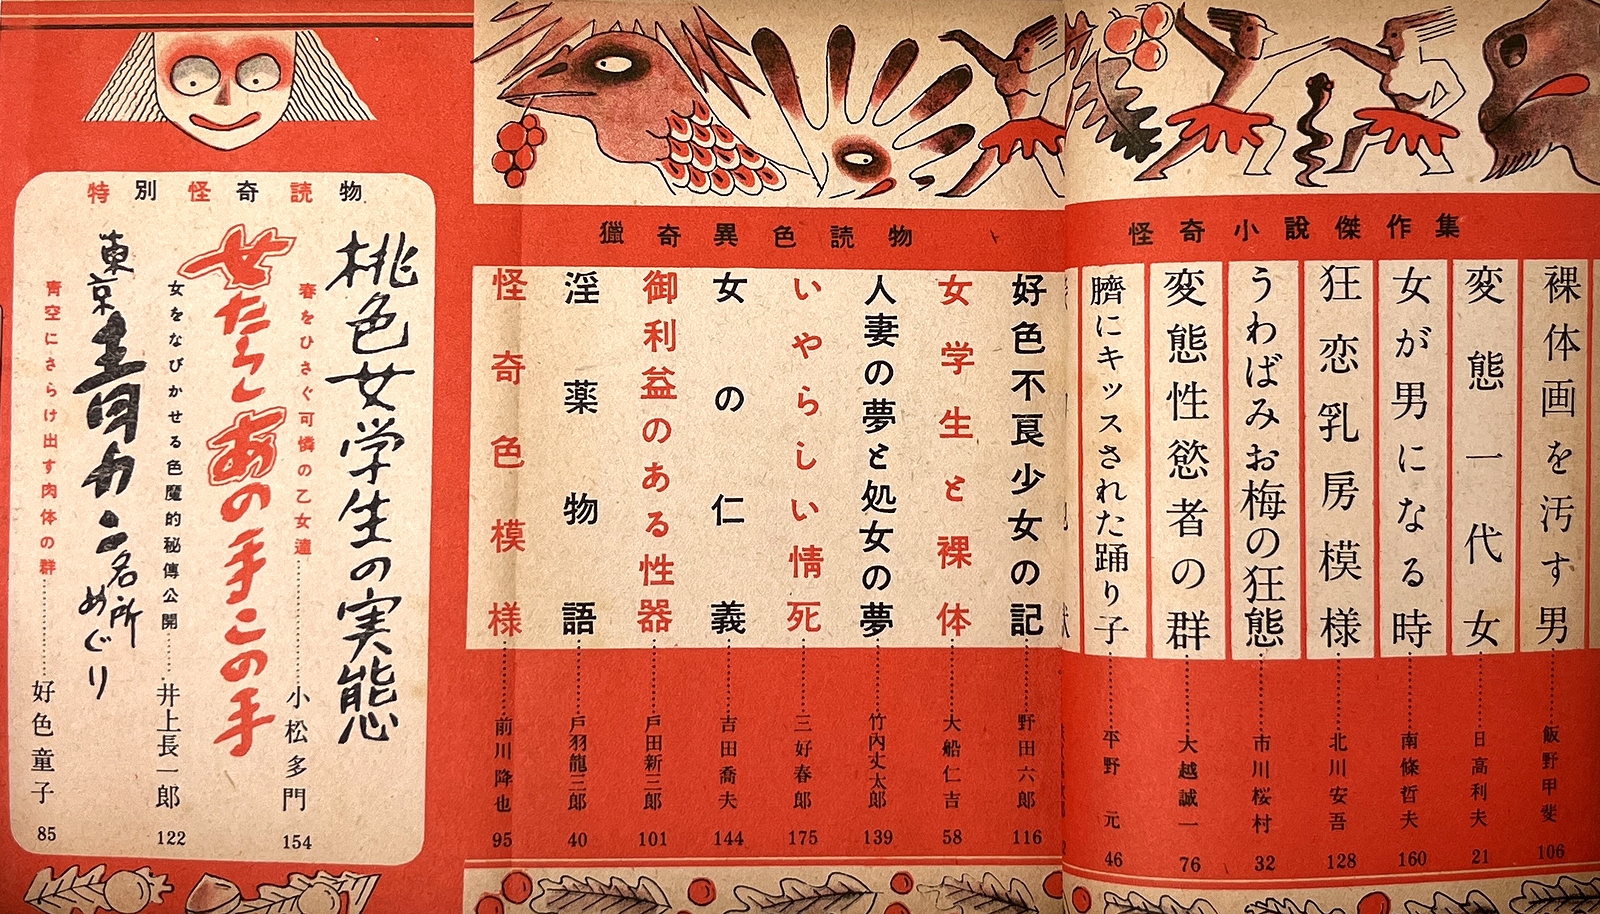 怪奇小說傑作集
裸体画を汚す男 飯野甲斐 106
変態一代女 日高利夫 21
女が男になる時 南條哲夫 160
狂恋乳房模様 北川安吾 128
うわばみお梅の狂態 市川桜村 32
変態性慾者の群 大越誠一 76
臍にキッスされた踊り子 平野元 46
獵奇異色読物
好色不良少女の記 野田六郎 116
女学生と裸体 大船仁吉 58
人妻の夢と処女の夢 竹内丈太郎 139
いやらしい情死 三好春郎 175
女の仁義 吉田喬夫 144
御利益のある性器 戸田新三郎 101
淫薬物語 戸羽龍三郎 40
怪奇色模様 前川隆也 95
特別怪奇読物
桃色女学生の実態
春をひさぐ可憐の乙女達 小松多門 154
女たらしあの手この手
女をなびかせる色魔的秘傳公開 井上長一郎 122
東京青カン名所めぐり
青空にさらけ出す肉体の群 好色童子 85